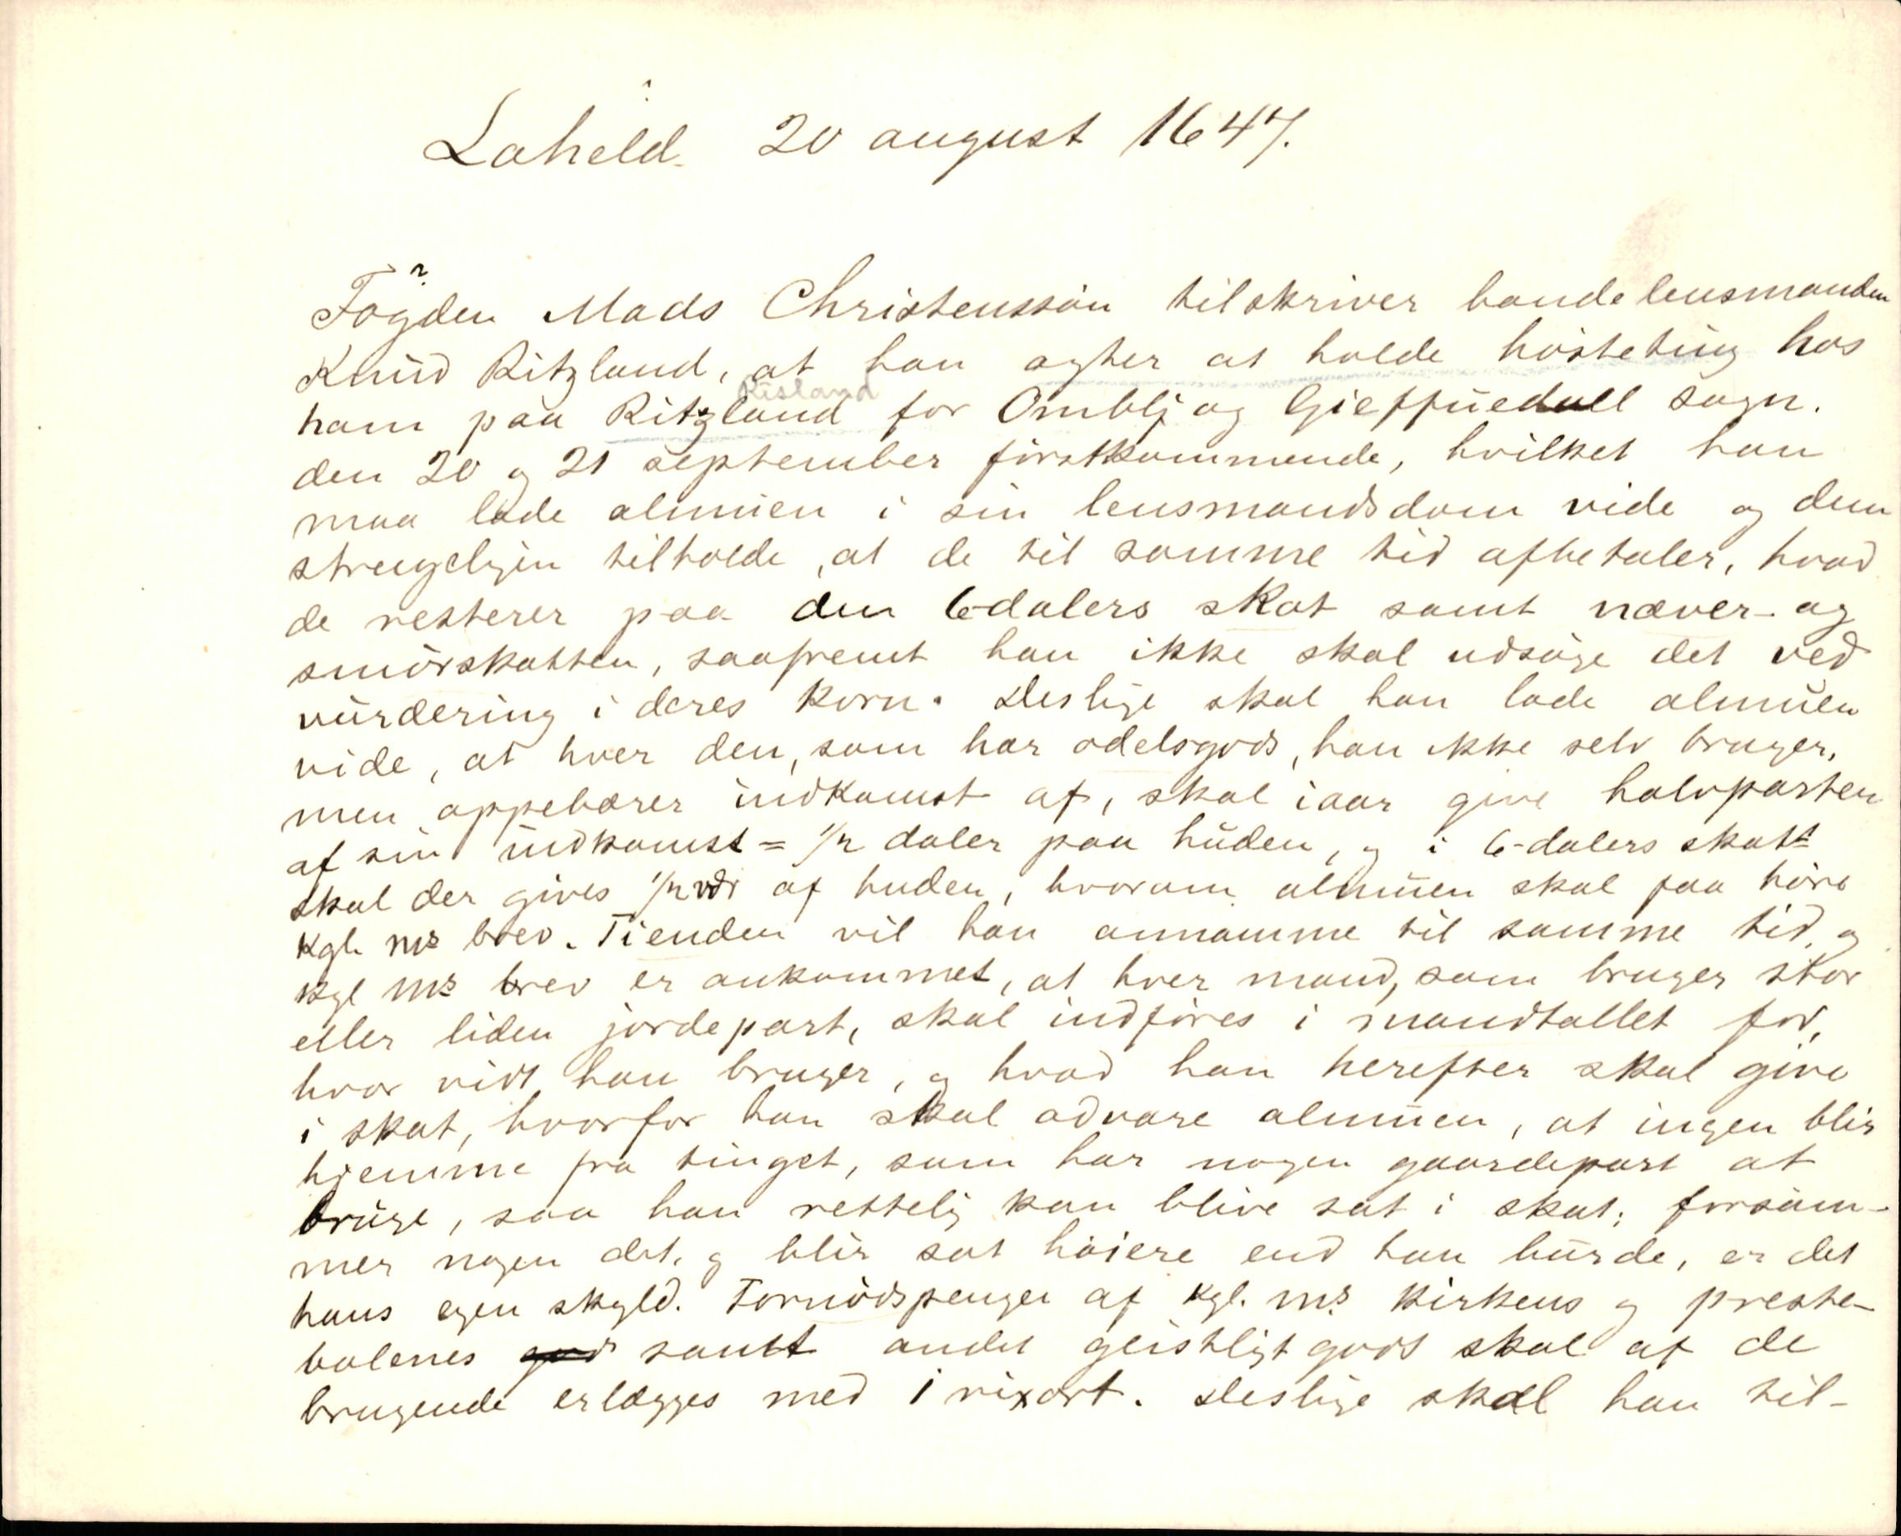 Laheld 20 august 1647.
Fogden Mads Christenssön tilskriver bondelensmanden
Knud Ritzland, at han agter at holde hösteting hos
Risland
ham paa Ritzland for Omblj og Gieffuedall sogn.
den 20 og 21 september förstkommende, hvilket han
maa lade almuen i sin lensmandsdom vide og dem
strengeligen tilholde, at de til samme tid afbetaler, hvad
de resterer paa den 6 dalers skat samt næver- og
smörskatten, saafremt han ikke skal udsöge det ved
vurdering i deres korn. Deslige skal han lade almuen
vide, at hver den, som har odelsgods, han ikke selv bruger,
men oppebærer indkomst af, skal iaar give halvparten
af sin indkomst = 1/2 daler paa huden, og i 6-dalers skatt
skal der gives 1/2 rdr af huden, hvorom almuen skal faa höre
kgl. ms brev. Tienden vil han annamme til samme tid, og
kgl ms brev er ankommet, at hver mand, som bruger stor
eller liden jordepart, skal indföres i mandtallet for,
hvor vidt han bruger, og hvad han herefter skal give
i skat, hvorfor han skal advare almuen, at ingen blir
hjemme fra tinget, som har nogen gaardepart at
bruge, saa han rettelig kan blive sat i skat; forsöm-
mer nogen det, og blir sat höiere end han burde, er det
hans egen skyld. Fornödspenger af kgl. ms kirkens og preste-
bolenes god samt andet geistligt gods skal af de
brugende erlægges med 1 rixort. Deslige skal han til-